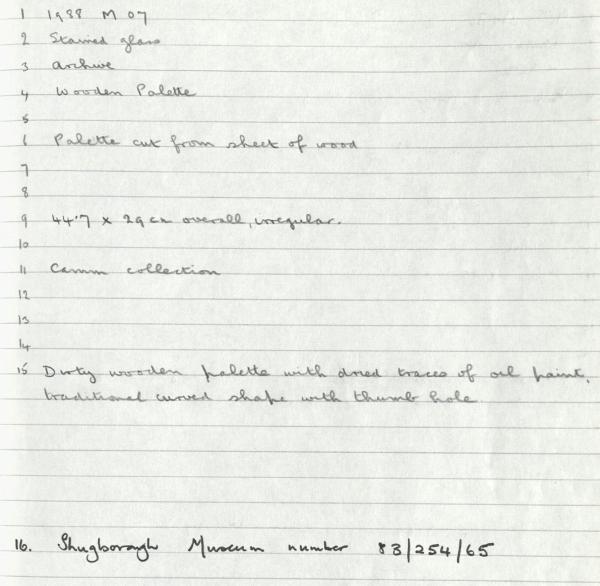 1 1988 M 07
2 Stained glass
3 archive
4 Wooden Palette
5
6 Palette cut from sheet of wood
7
8
9 44.7 x 29 cm overall, irregular.
10
11 Camm collection
12
13
14
15 Dirty wooden palette with dried traces of oil paint,
traditional curved shape with thumb hole.
16. Shugborough Museum number 83/254/65